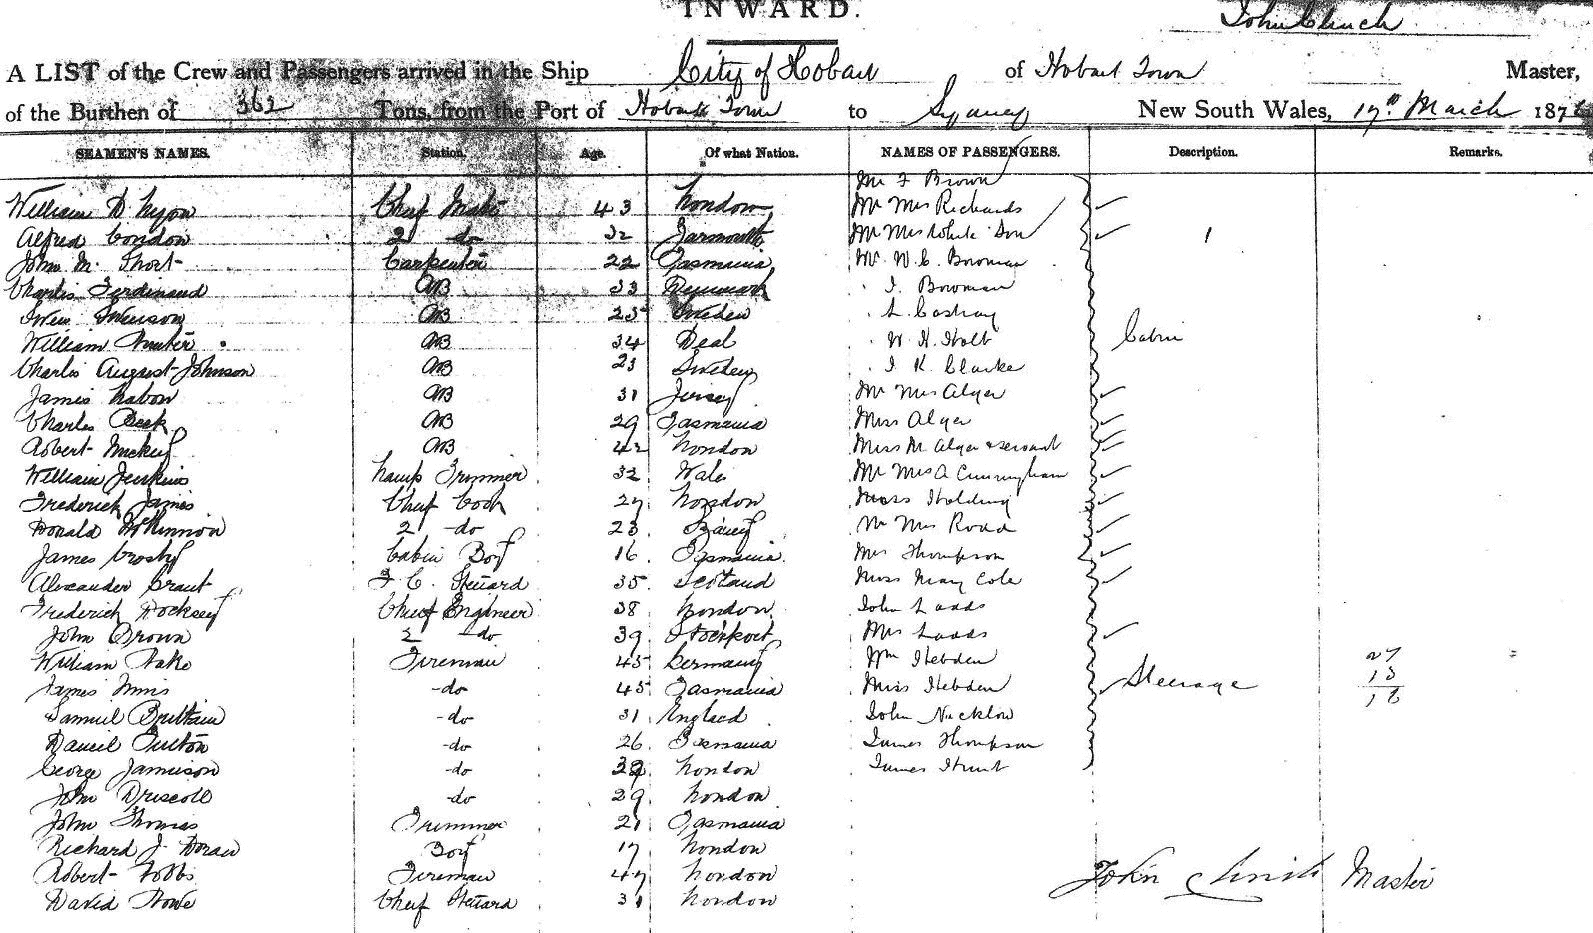 INWARD.
John Clinch
A LIST of the Crew and Passengers arrived in the Ship City of Hobart of Hobart Town Master,
of the Burthen of 362 Tons, from the Port of Hobart Town to Sydney New South Wales, 17th March 187
SEAMEN'S NAMES. Station. Age. Of what Nation. NAMES OF PASSENGERS. Description. Remarks.
Mr F Brown
William D. Lyon Chief Mate 43 London Mr Mrs Richards
Alfred Condon 2 do 32 Yarmouth Mr Mrs White Son
John M. Short Carpenter 22 Tasmania Mr W. C. Bowman
Charles Ferdinand AB 33 Denmark I. Bowman
Swen Swenson AB 25 Sweden L. Castray
William Hunter AB 34 Deal W. H. Holt Cabin
Charles August Johnson AB 23 Sweden I K. Clarke
James AB 31 Jersey Mr Mrs Alger
Charles Beek AB 29 Tasmania Miss Alger
Robert AB 42 London Miss M. Alger & servant
William Jenkins Lamp Trimmer 32 Wales Mr Mrs A Cunningham
Frederick James Chief Cook 27 London Miss Holding
Donald McKinnon 2 do 23 Mr Mrs Rodd
James Crosby Cabin Boy 16 Tasmania Mrs Thompson
Alexander Grant F. C. Steuard 35 Scotland Miss Mary Cole
Frederick Docksey Chief Engineer 38 London John Ladds
John Brown 2 do 39 Stockport Mrs Ladds
William Fireman 45 Germany Wm Hebden 27
James do 45 Tasmania Miss Hebden Steerage 15
12
Samuel Brittain do 31 England John Nicklow
Daniel Furton do 26 Tasmania James Thompson
George Jamieson do London James Hunt
John Driscoll do 29 London
John Thomas Trimmer 21 Tasmania
Richard J. Doran Boy 17 London
Robert Hobbs Fireman 47 London John Clinch Master
David Howe Chief Steuard 31 London